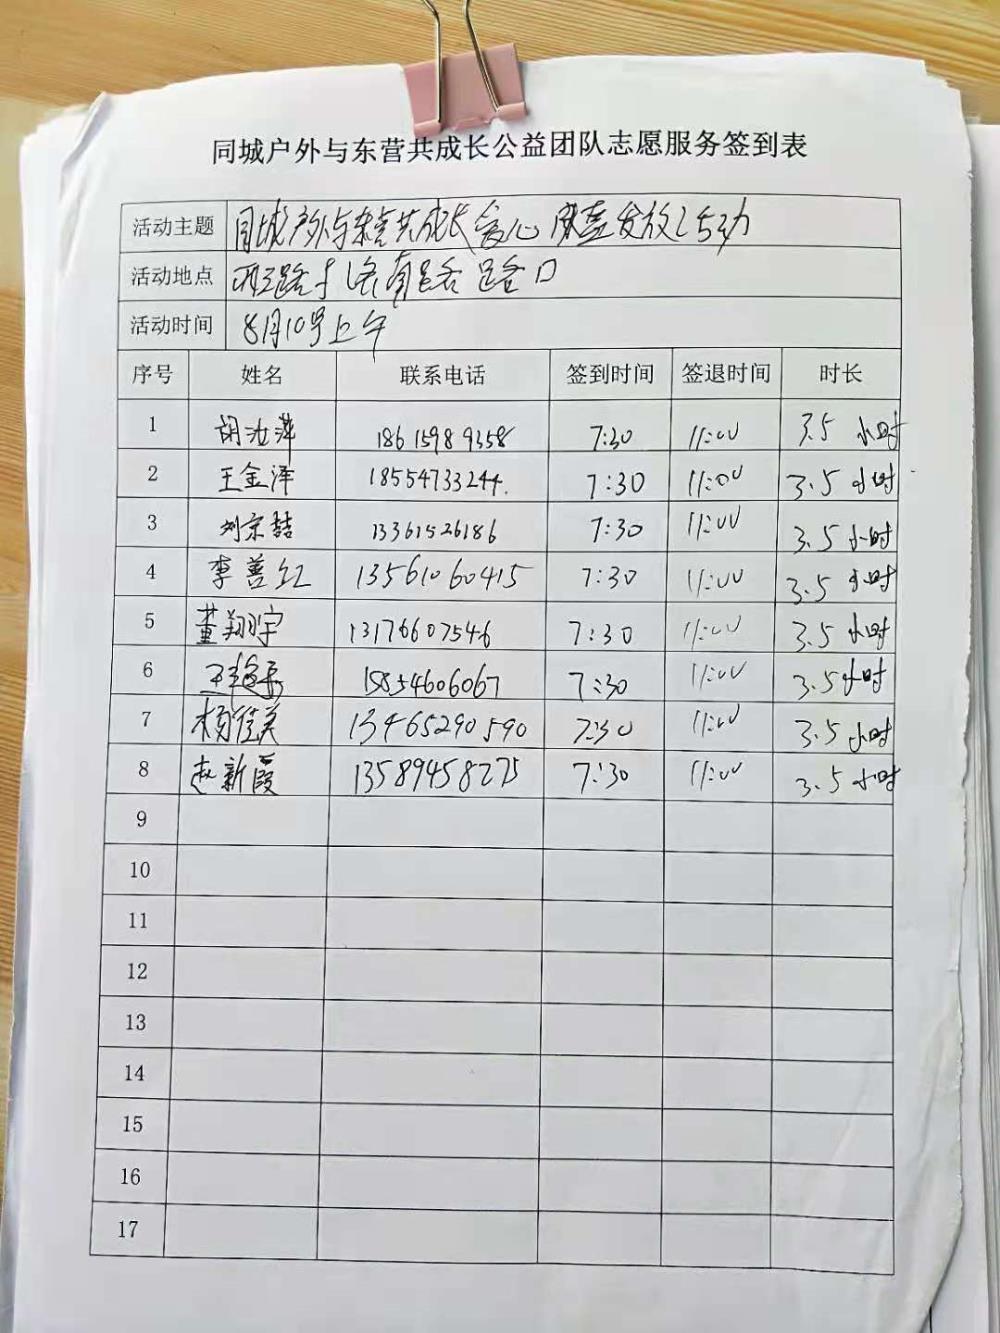 同城户外与东营共成长公益团队志愿服务签到表
活动主题 同城户外与东营共成长爱心 发放活动
活动地点 西三路 路口
活动时间 8月10号上午
序号 姓名 联系电话 签到时间 签退时间 时长
1 胡汝萍 18615989358 7:30 11:00 3.5 小时
2 王金泽 18554733244. 7:30 11:00 3.5 小时
3 刘宗喆 13361526186 7:30 11:00 3.5 小时
4 李善红 13561060415 7:30 11:00 3.5 小时
5 董翔宇 13176607546 7:30 11:00 3.5 小时
6 15854606067 7:30 11:00 3.5小时
7 杨佳美 13465290590 7:30 11:00 3.5 小时
8 赵新霞 13589458275 7:30 11:00 3.5 小时
9
10
11
12
13
14
15
16
17